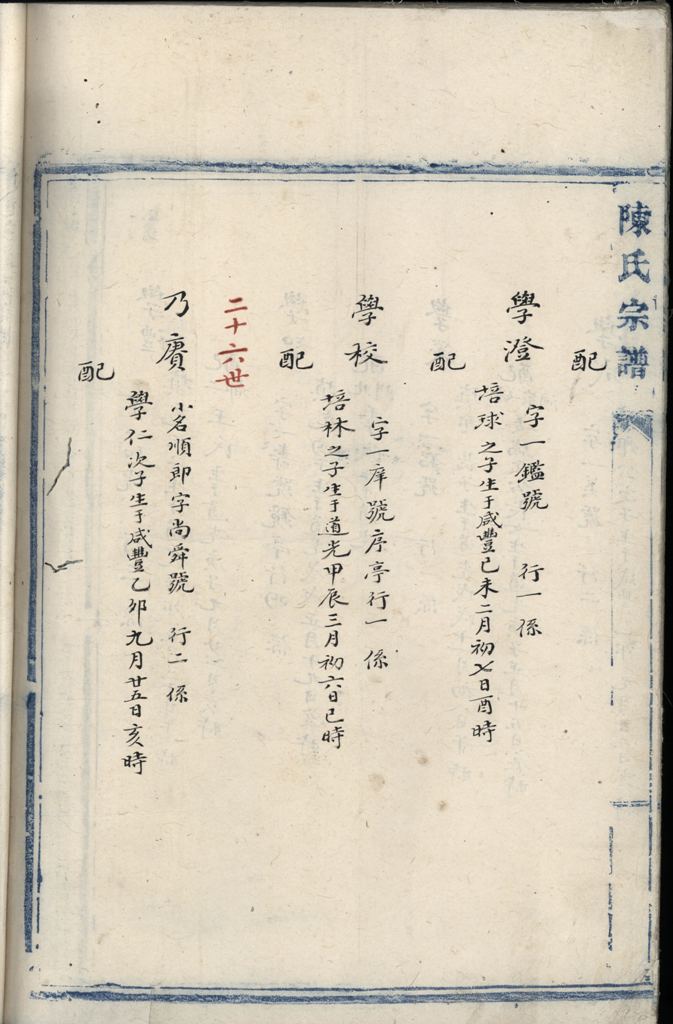 陳氏宗譜
配
學澄
字一鑑號 行一係
培球之子生于咸豐己未二月初七日酉時
配
學校
字一庠號序亭行一係
培林之子生于道光甲辰三月初六日巳時
配
二十六世
乃賡
小名順郎字尚舜號 行二係
學仁次子生于咸豐乙卯九月廿五日亥時
配